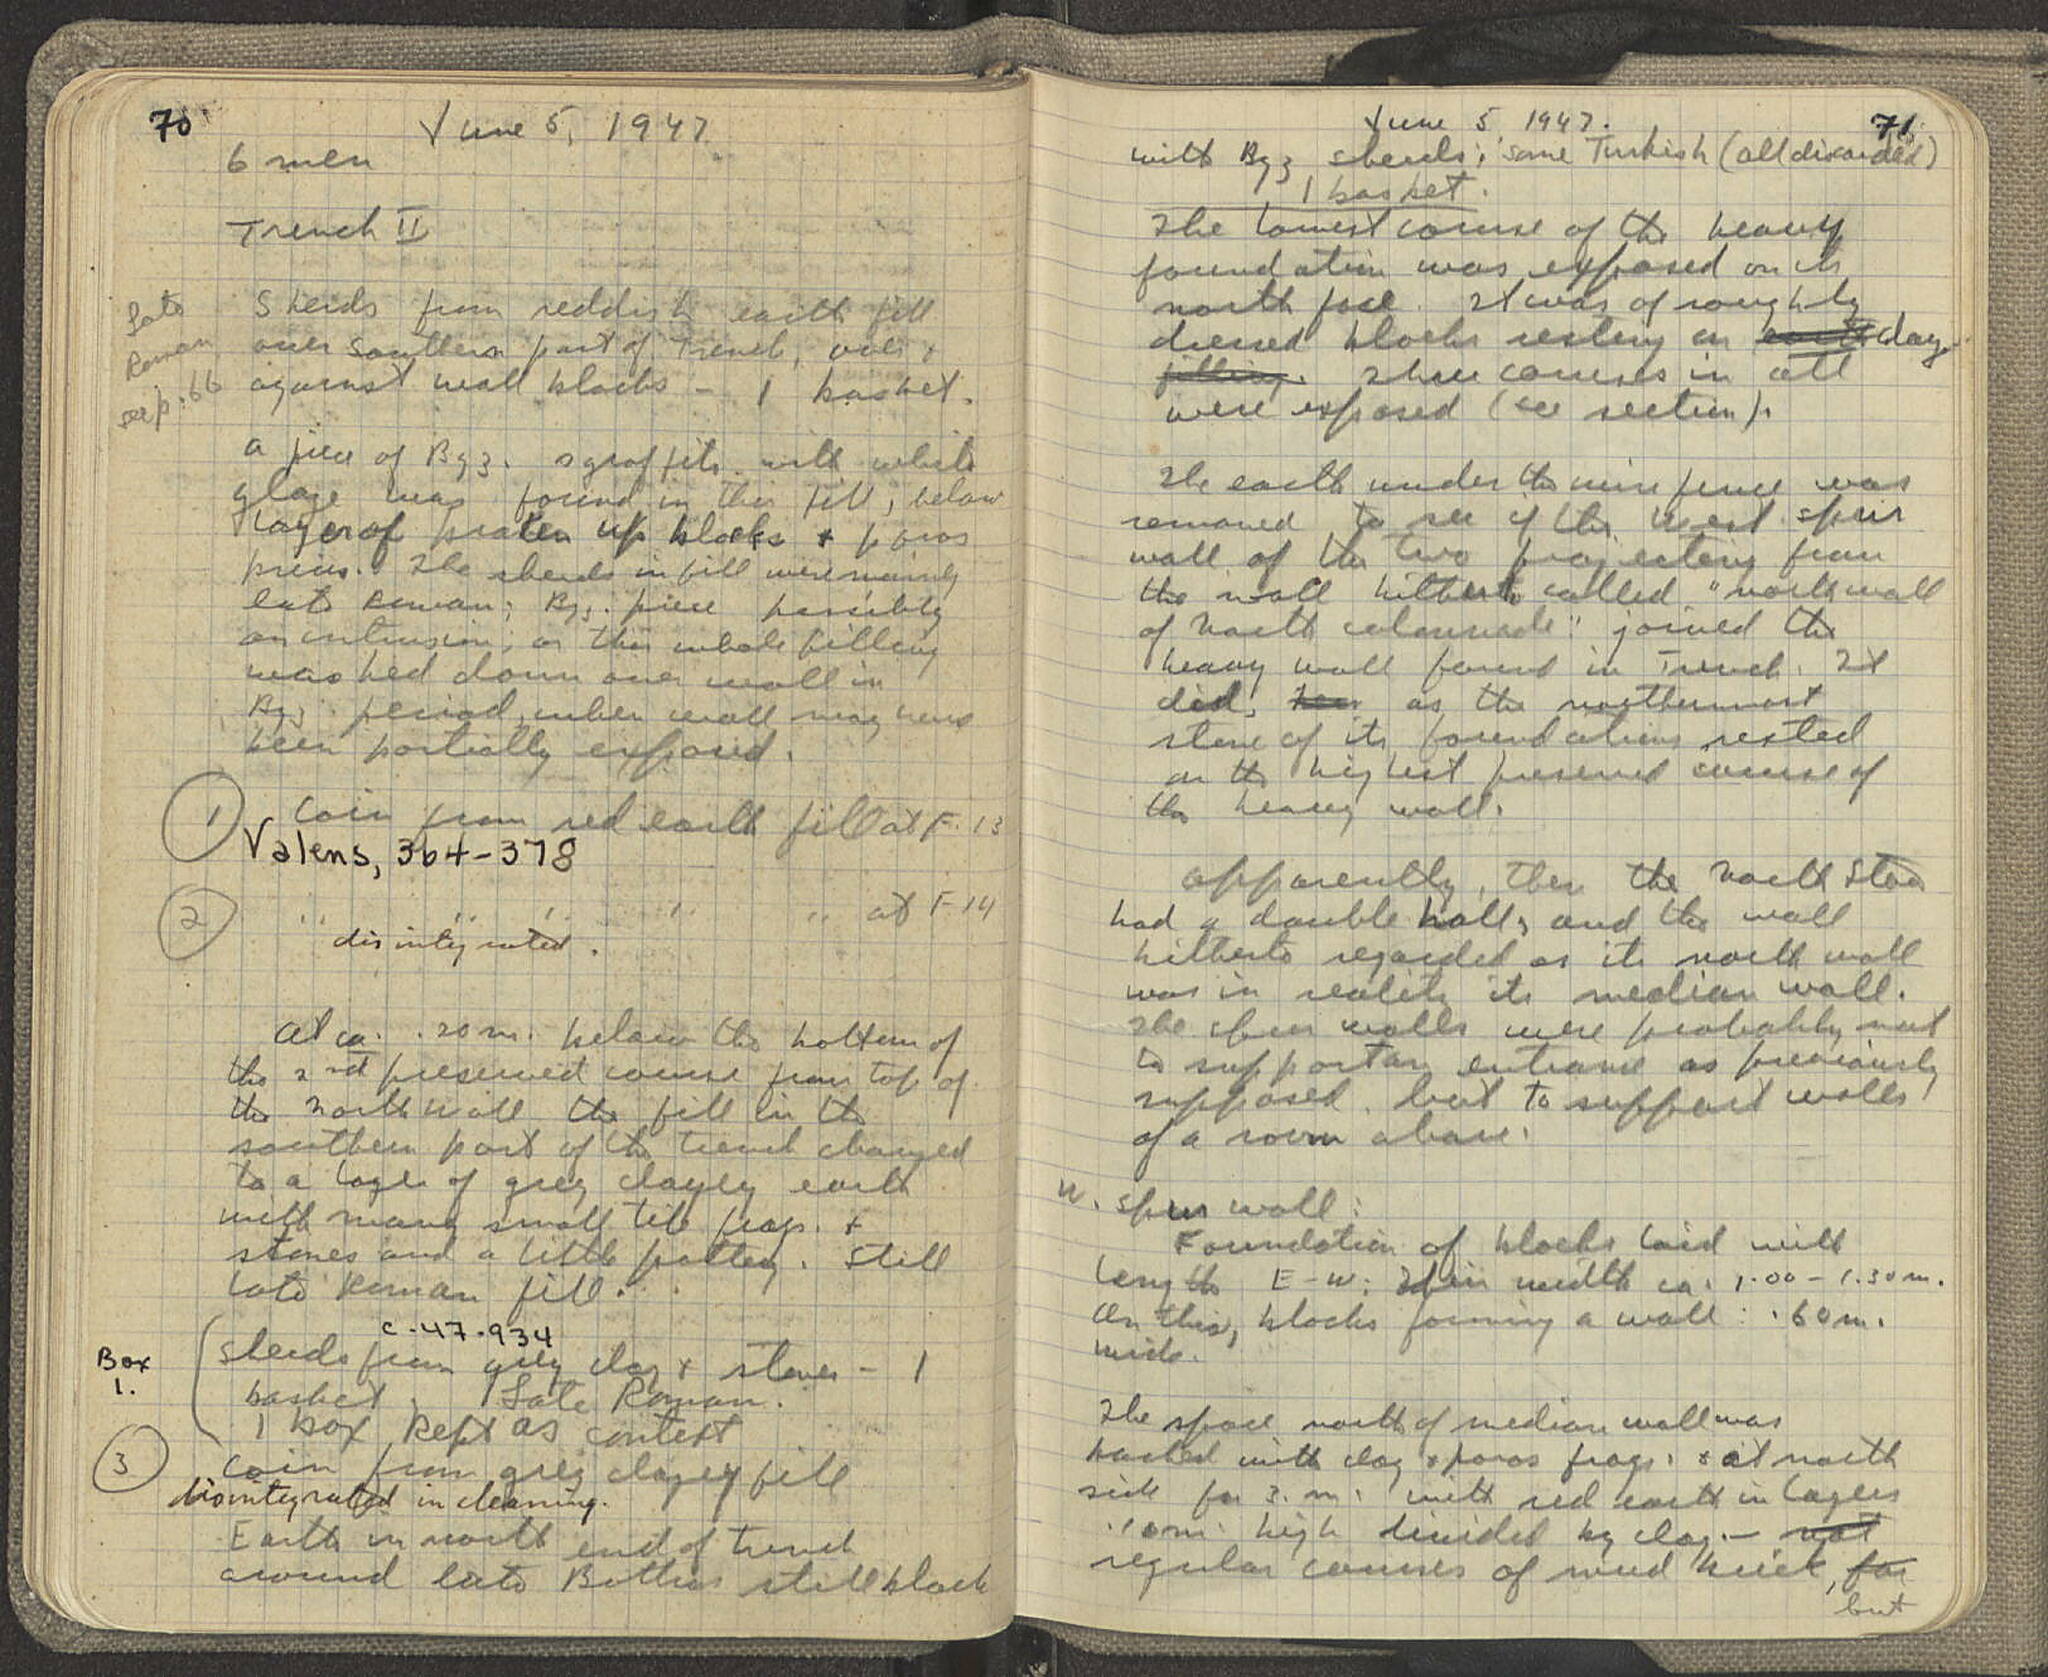 70
June 5, 1947
6 men
Trench II
Late
Roman
see p. 66
Sherds from reddish earth fill
over southern part of trench, over +
against wall blocks - 1 basket.
A piece of Byz. sgraffito with white
glaze was found in this fill, below
layer of broken up blocks + poros
pieces. The sherds in fill were mainly
late Roman; Byz. piece possibly
an intrusion, or this whole filling
washed down over wall in
Byz. period, when wall may have
been partially exposed.
1 Coin from red earth fill at F.13
Valens, 364-378
2 " " " " " at F 14
disintegrated.
At ca. .20 m. below the bottom of
the 2nd preserved course from top of
the north wall the fill in the
southern part of the trench changed
to a layer of grey clayey earth
with many small tile frags. +
stones and a little pottery. Still
late Roman fill.
C-47-934
Box
1.
Sherds from grey clay + stones - 1
basket. Late Roman.
1 box kept as context
3 Coin from grey clayey fill
disintegrated in cleaning.
Earth in north end of trench
around late Bothros still black
June 5 1947.
71
with Byz sherds; some Turkish (all discarded)
1 basket.
The lowest course of the heavy
foundation was exposed on its
north face. It was of roughly
dressed blocks resting on earth clay.
filling. Three courses in all
were exposed (see section).
The earth under the wire fence was
removed to see if the west spur
wall of the two projecting from
the wall hitherto called "north wall
of North colonnade" joined the
heavy wall found in Trench. It
did, as the northernmost
stone of its foundations rested
on the highest preserved course of
the heavy wall.
Apparently, then the North Stoa
had a double hall, and the wall
hitherto regarded as its north wall
was in reality its median wall.
The spur walls were probably not
to support an entrance as previously
supposed, but to support walls
of a room above.
W. spur wall:
Foundation of blocks laid with
length E-W: in width ca. 1.00-1.30 m.
On this, blocks forming a wall .60 m.
wide.
The space north of median wall was
packed with clay + poros frags. + at north
side for 3. m. with red earth in layers
.10 m. high divided by clay - not
regular courses of mud brick, for
but